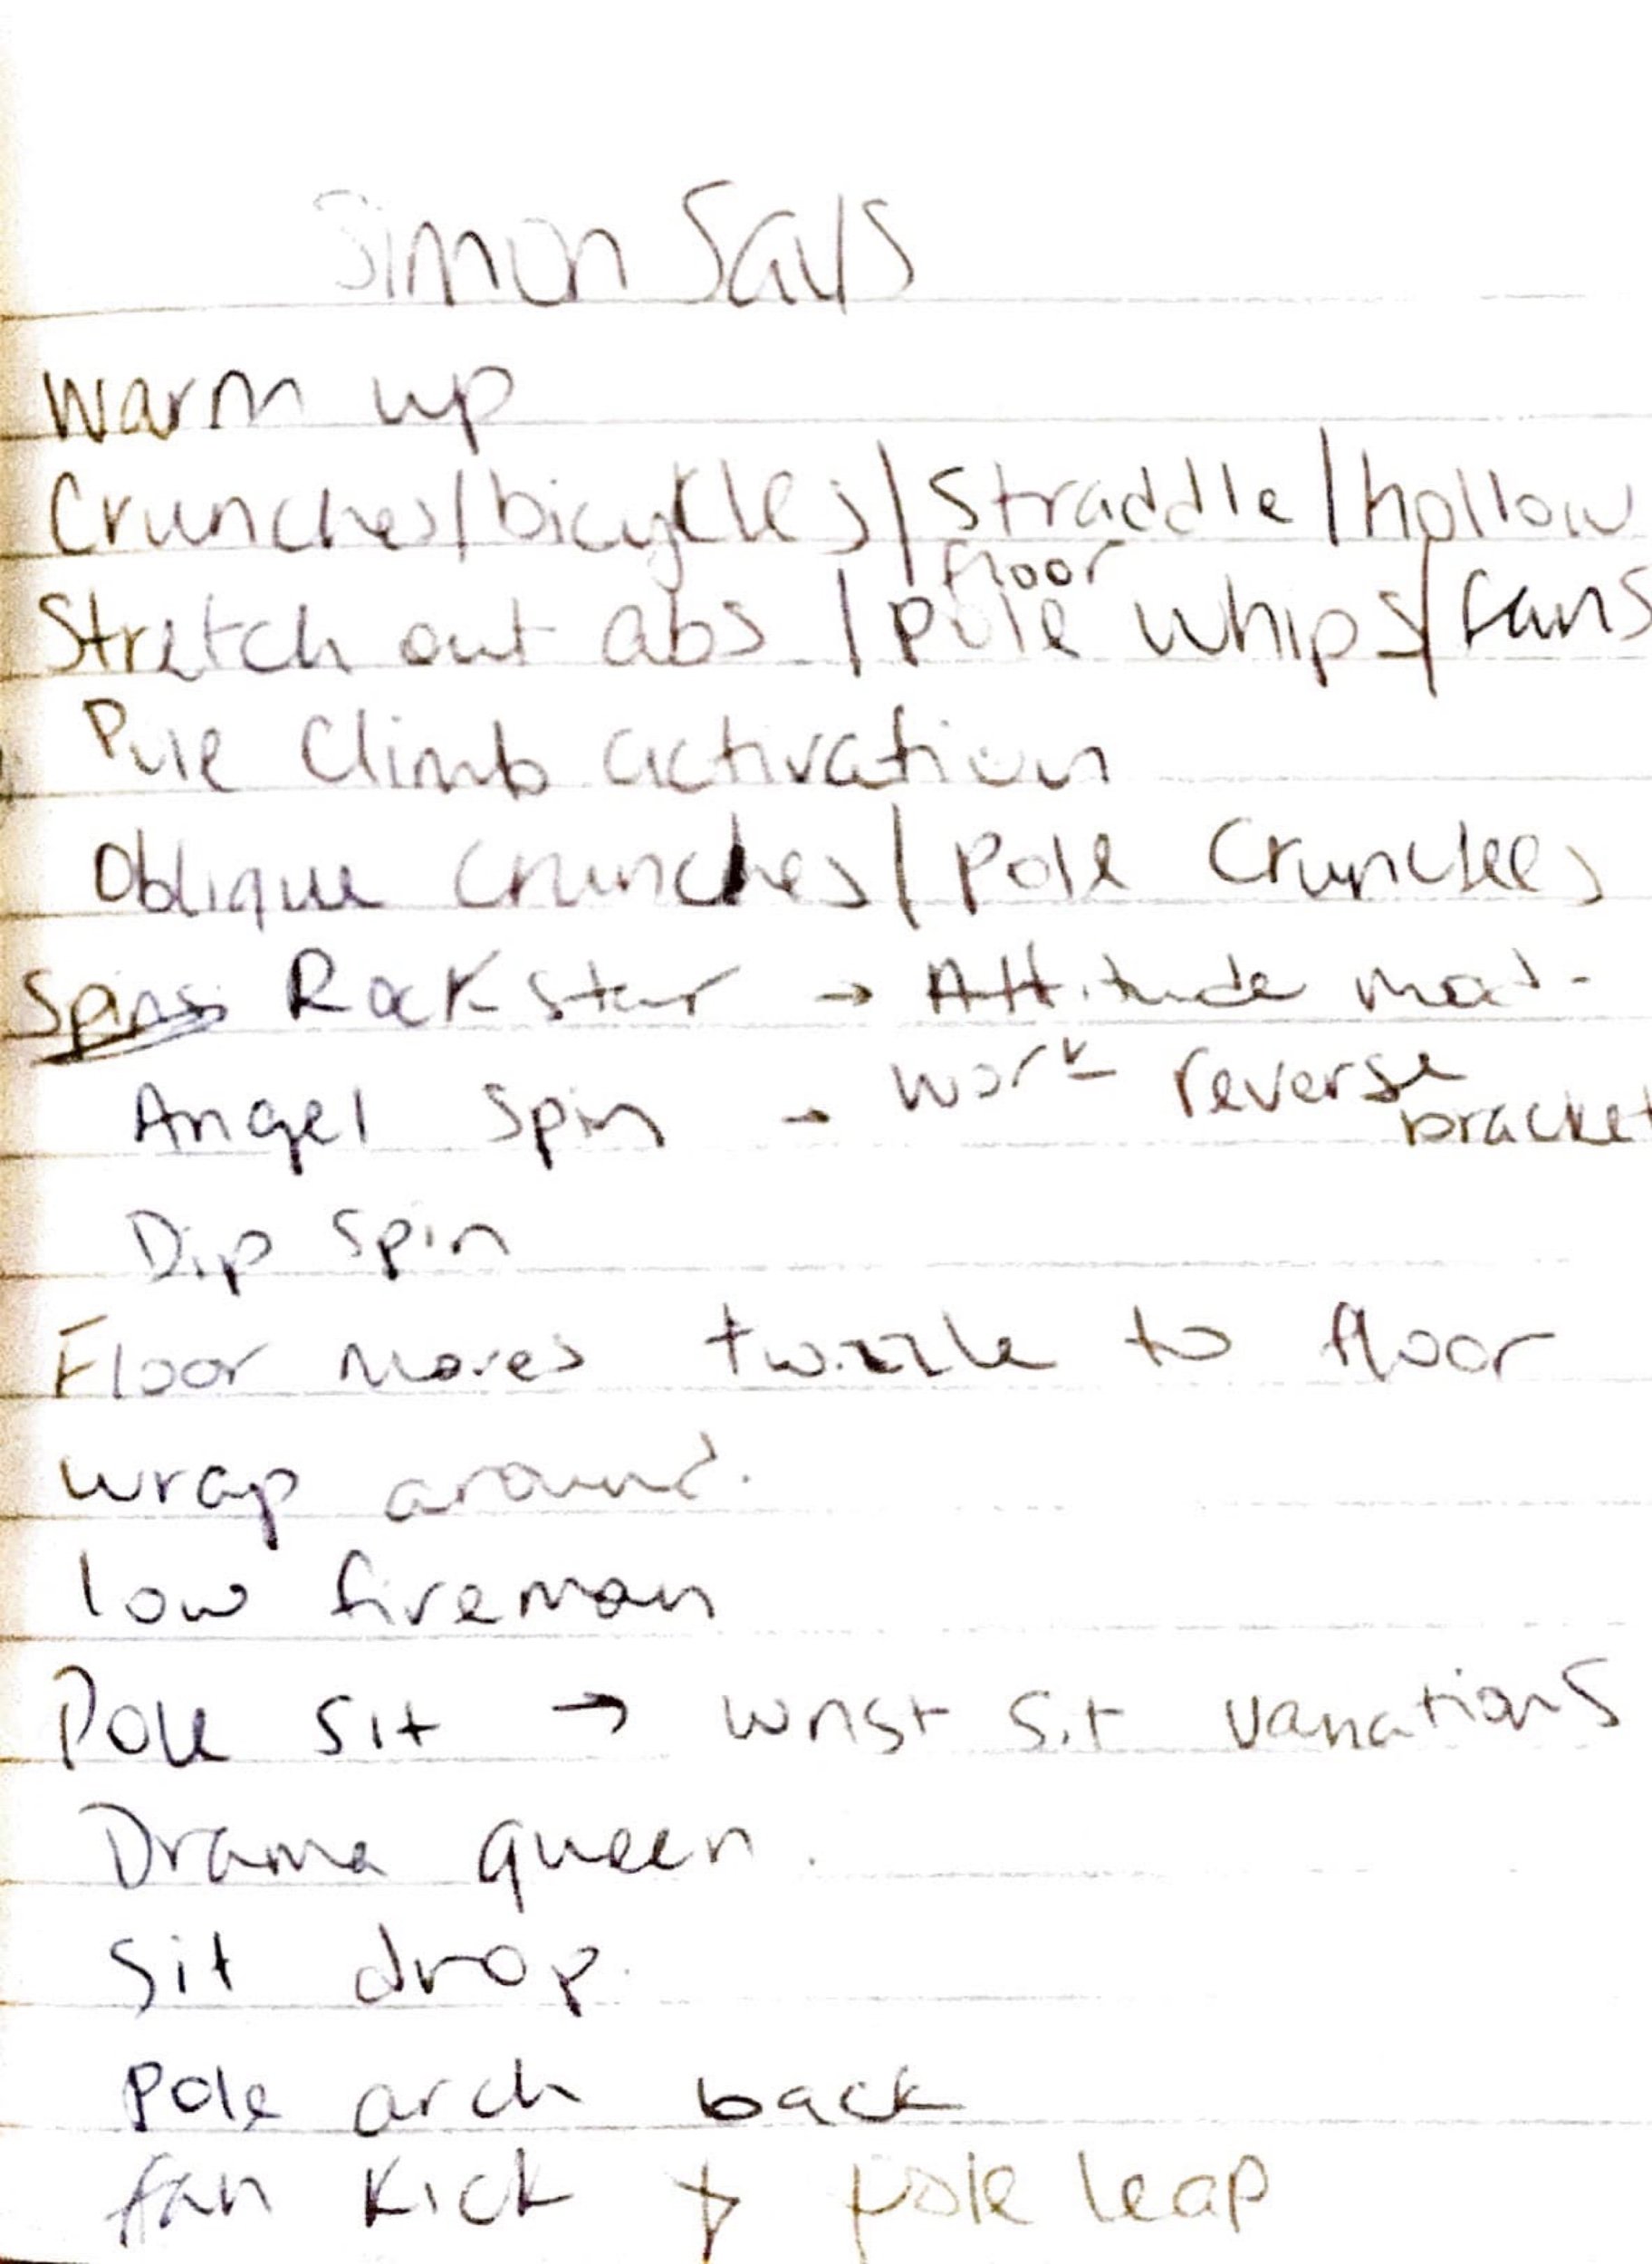 Simon Says
Warm up
Crunches/bicycles/straddle/hollow
floor
Stretch out abs / pole whips/fans
Pole Climb activation
Oblique crunches/pole crunches
Spins Rockstar → Attitude mod.
Angel Spin → work reverse
bracket
Dip Spin
Floor moves twizzle to floor
wrap around.
low fireman
Pole sit → wrist sit variations
Drama queen.
Sit drop.
Pole arch back
fan kick + pole leap